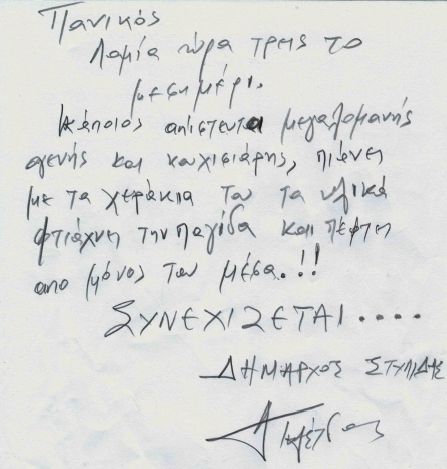 Πανικός
Λαμία ώρα τρεις το
μεσημέρι.
Κάποιος απίστευτα μεγαλομανής
αγενής και καυχισιάρης, πιάνει
με τα χεράκια του τα υλικά
φτιάχνει την παγίδα και πέφτει
απο μόνος του μέσα.!!
ΣΥΝΕΧΙΖΕΤΑΙ....
ΔΗΜΑΡΧΟΣ ΣΤΥΛΙΔΑΣ